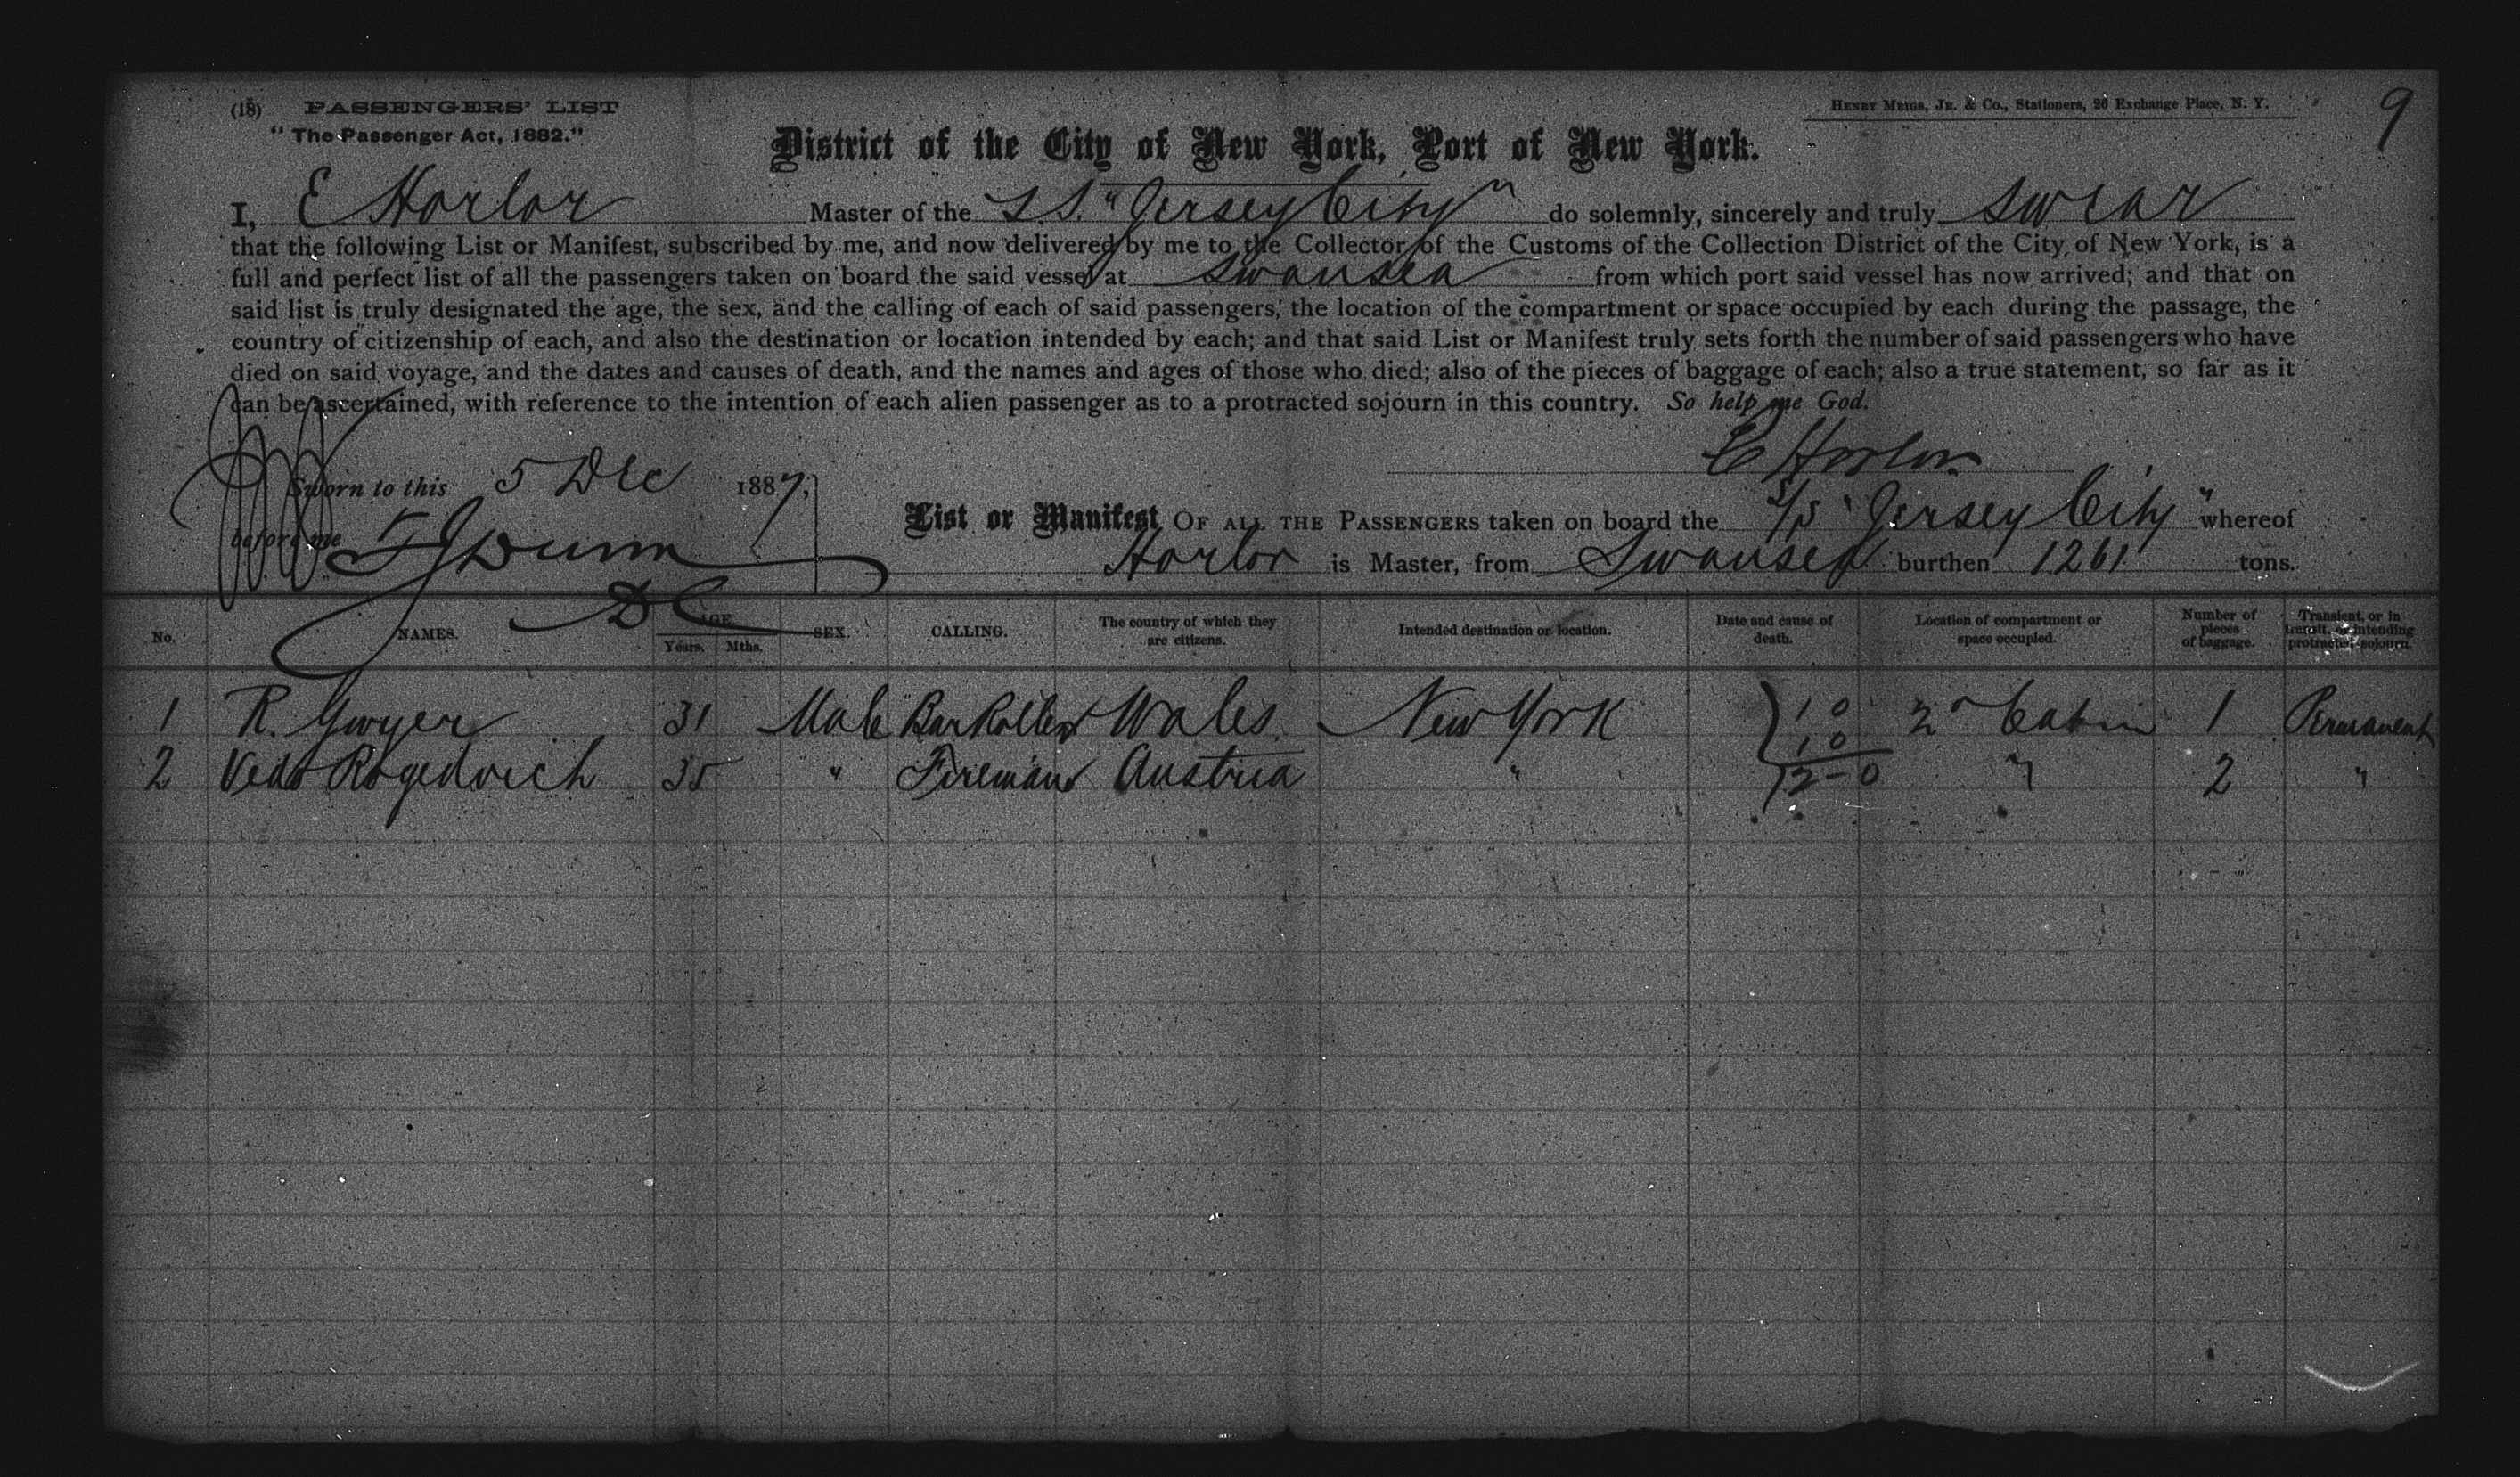 (18) PASSENGERS' LIST
"The Passenger Act, 1882."
HENRY MEIGS, JR. & CO., Stationers, 26 Exchange Place, N. Y.
9
District of the City of New York, Port of New York.
I, E Horlor Master of the S.S. "Jersey City" do solemnly, sincerely and truly swear
that the following List or Manifest, subscribed by me, and now delivered by me to the Collector of the Customs of the Collection District of the City of New York, is a
full and perfect list of all the passengers taken on board the said vessel at Swansea from which port said vessel has now arrived; and that on
said list is truly designated the age, the sex, and the calling of each of said passengers, the location of the compartment or space occupied by each during the passage, the
country of citizenship of each, and also the destination or location intended by each; and that said List or Manifest truly sets forth the number of said passengers who have
died on said voyage, and the dates and causes of death, and the names and ages of those who died; also of the pieces of baggage of each; also a true statement, so far as it
can be ascertained, with reference to the intention of each alien passenger as to a protracted sojourn in this country. So help me God.
E Horlor
Sworn to this 5 Dec 1887,
before me F J Dunn
DC
List or Manifest OF ALL THE PASSENGERS taken on board the S/S "Jersey City" whereof
Horlor is Master, from Swansea burthen 1261 tons.
No. NAMES. AGE. Years. Mths. SEX. CALLING. The country of which they are citizens. Intended destination or location. Date and cause of death. Location of compartment or space occupied. Number of pieces of baggage. Transient, or in transit, or intending protracted sojourn.
1 R. Gwyer 31 Male Bar Roller Wales New York 1 0 2nd Cabin 1 Permanent
1 0
2 Vedo Rogedvich 35 " Fireman Austria " 2-0 " 2 "